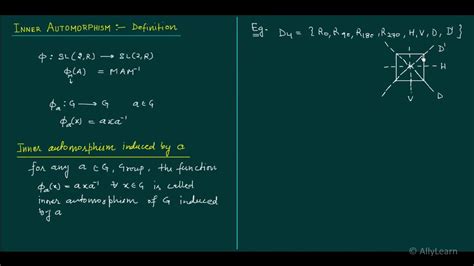 INNER AUTOMORPHISM :- Definition
φ : SL(2,R) → SL(2,R)
φ(A) = MAM⁻¹
φₐ : G → G a∈G
φₐ(x) = axa⁻¹
Inner automorphism induced by a
for any a ∈ G, Group, the function
φₐ(x) = axa⁻¹ ∀ x∈G is called
inner automorphism of G induced
by a
Eg- D₄ = { R₀, R₉₀, R₁₈₀, R₂₇₀, H, V, D, D' }
D'
H
V
D
© AllyLearn